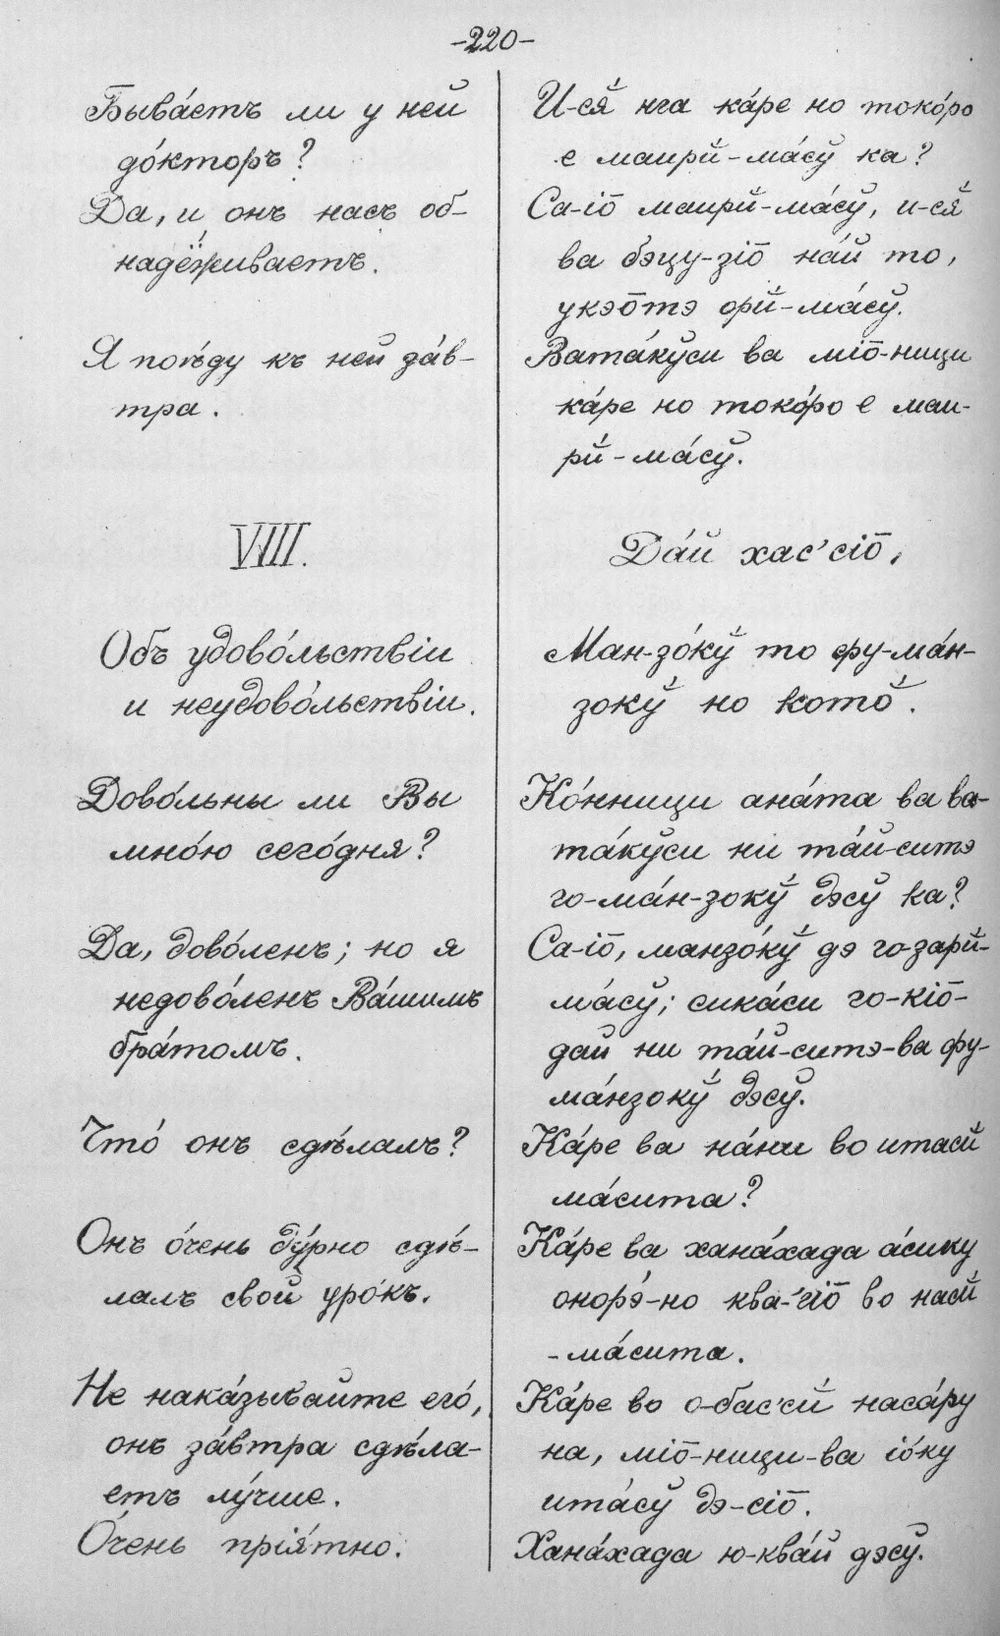 -220-
Быва́етъ ли у ней
до́кторъ?
Да, и онъ насъ об-
надёживаетъ.
Я пое́ѣду къ ней за́в-
тра.
VIII.
Объ удово́льствіи
и неудово́льствіи.
Дово́льны ли Вы
мно́ю сего́дня?
Да, дово́ленъ; но я
недово́ленъ Ва́шимъ
бра́томъ.
Что́ онъ сдѣ́лалъ?
Онъ о́чень ду́рно сдѣ́-
лалъ свой уро́къ.
Не нака́зывайте его́,
онъ за́втра сдѣ́ла-
етъ лу́чше.
О́чень прія́тно.
И-ся́ нга ка́ре но токо́ро
е маирӣ-ма́сў ка?
Са-іо̄ маирӣ-ма́сў, и-ся́
ва бэцу-зіо̄ на́й то,
укэо̄тэ орӣ-ма́сў.
Вата́кўси ва міо̄-ници
ка́ре но токо́ро е маи-
рӣ-ма́сў.
Да́й хас'сіо̄.
Ман-зо́кў то фу-ма́н-
зокў но кото̄.
Ко́нници ана́та ва ва-
та́кўси ни та́й-ситэ
го-ма́н-зокў дэсў ка?
Са-іо̄, манзо́кў дэ го-зарӣ-
ма́сў; сика́си го-кіо̄-
дай ни та́й-ситэ-ва фу-
ма́нзокў дэсў.
Ка́ре ва на́ни во итасӣ
ма́сита?
Ка́ре ва хана́хада а́сику
онорэ́-но ква-гіо̄ во насӣ
-ма́сита.
Ка́ре во о-бас'сӣ наса́ру
на, міо̄-ници-ва іо́ку
ита́сў дэ-сіо̄.
Хана́хада ю-ква́й дэсў.